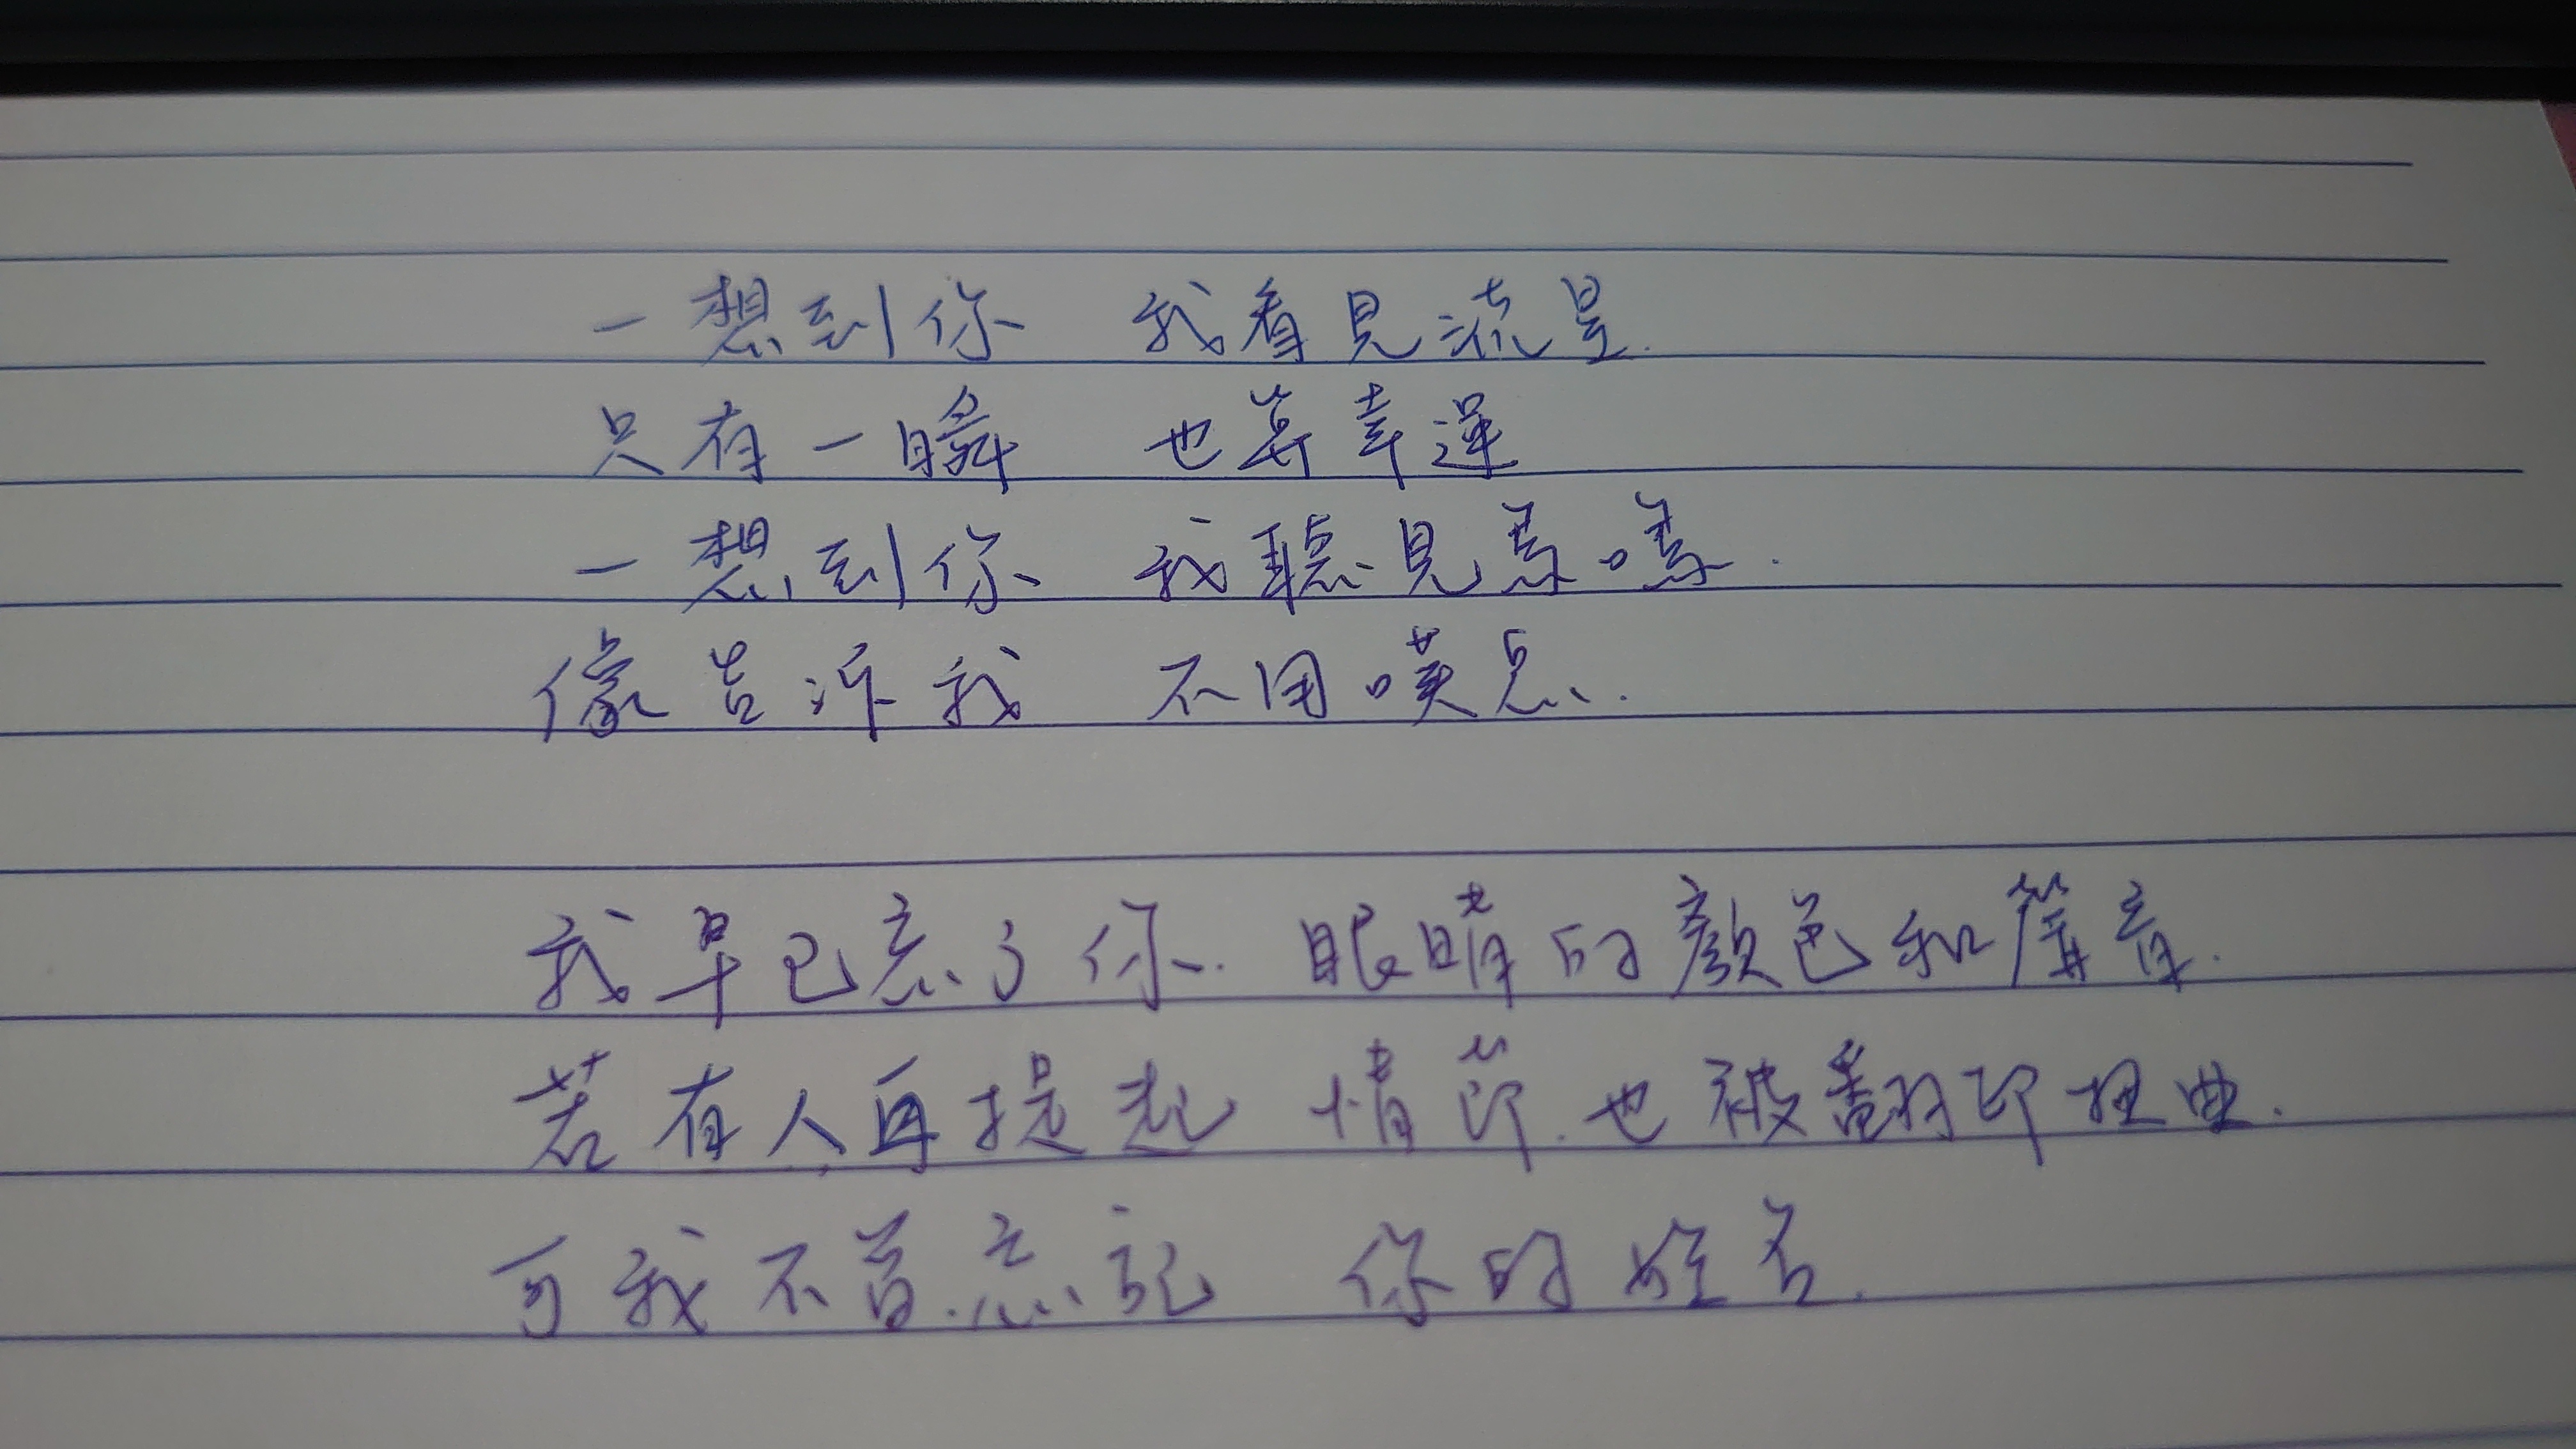 一想到你 我看見流星.
只有一瞬 也算幸運
一想到你 我聽見焉嗎.
像告訴我 不用嘆息.
我早已忘了你. 眼睛的顏色和聲音.
若有人再提起 情節.也被翻印扭曲.
可我不曾忘記 你的姓名.